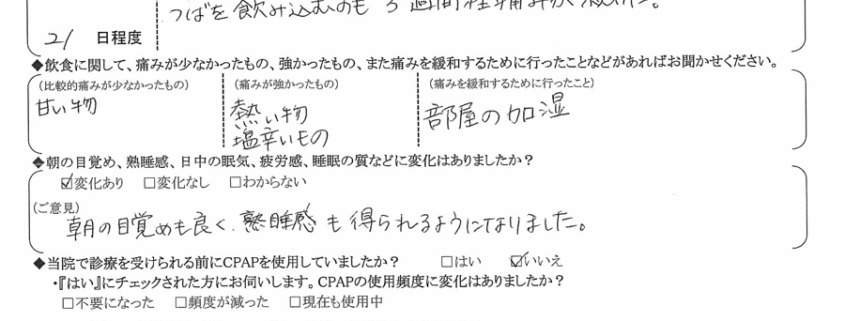 つばを飲み込むのも 3週間程痛みが
21 日程度
◆飲食に関して、痛みが少なかったもの、強かったもの、また痛みを緩和するために行ったことなどがあればお聞かせください。
(比較的痛みが少なかったもの) (痛みが強かったもの) (痛みを緩和するために行ったこと)
甘い物 熱い物 部屋の加湿
塩辛いもの
◆朝の目覚め、熟睡感、日中の眠気、疲労感、睡眠の質などに変化はありましたか?
☑変化あり □変化なし □わからない
(ご意見)
朝の目覚めも良く、熟睡感も得られるようになりました。
◆当院で診療を受けられる前にCPAPを使用していましたか? □はい ☑いいえ
・『はい』にチェックされた方にお伺いします。CPAPの使用頻度に変化はありましたか?
□不要になった □頻度が減った □現在も使用中